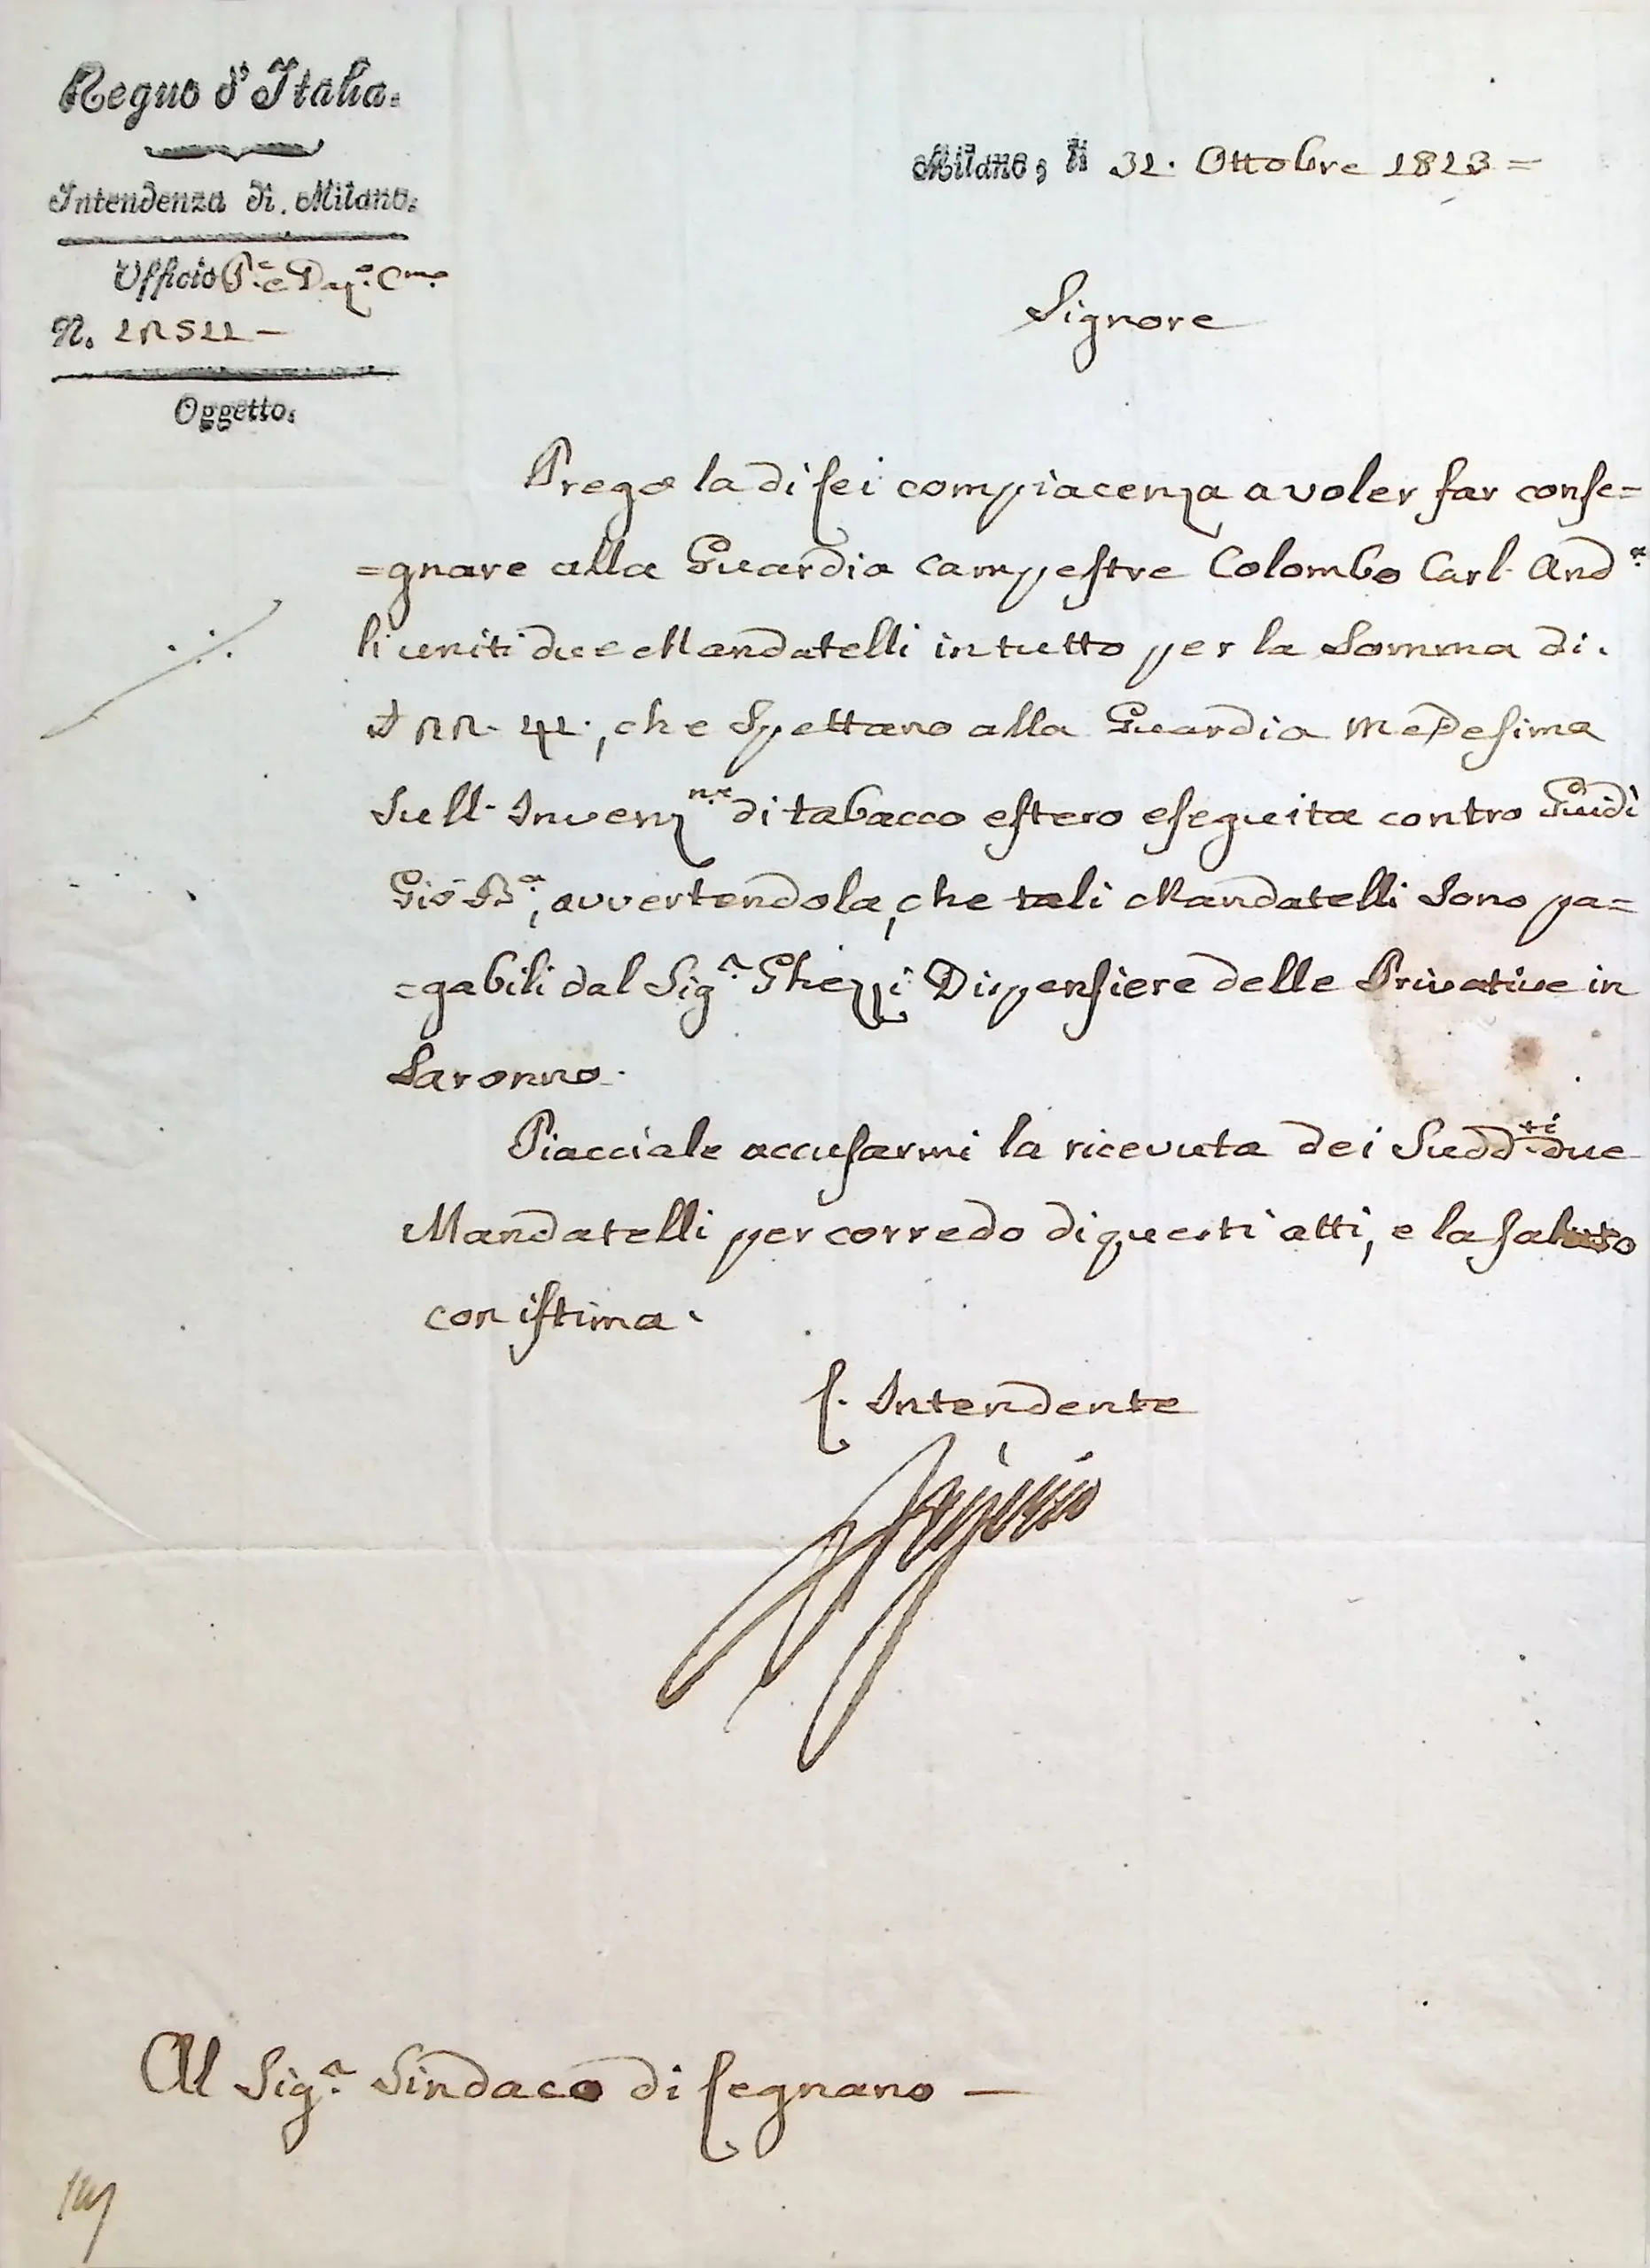 Regno d'Italia.
Milano, li 31. Ottobre 1813 =
Intendenza di Milano.
Ufficio P.e e Daz.o C.mo
N. 12511 -
Oggetto.
Signore
Prego la di lei compiacenza a voler far conse=
=gnare alla Guardia campestre Colombo Carl. And.a
li uniti due Mandatelli in tutto per la Somma di.
22. 41., che Spettano alla Guardia Medesima
Sull. Invenz.ne di tabacco estero eseguita contro Guidi
Gio B.a, avvertendola, che tali Mandatelli Sono pa=
=gabili dal Sig.r Ghezzi Dispensiere delle Privative in
Saronno.
Piacciale accusarmi la ricevuta dei Sudd.ti due
Mandatelli per corredo di questi atti, e la saluto
con istima.
L. Intendente
Al Sig.r Sindaco di Legnano —